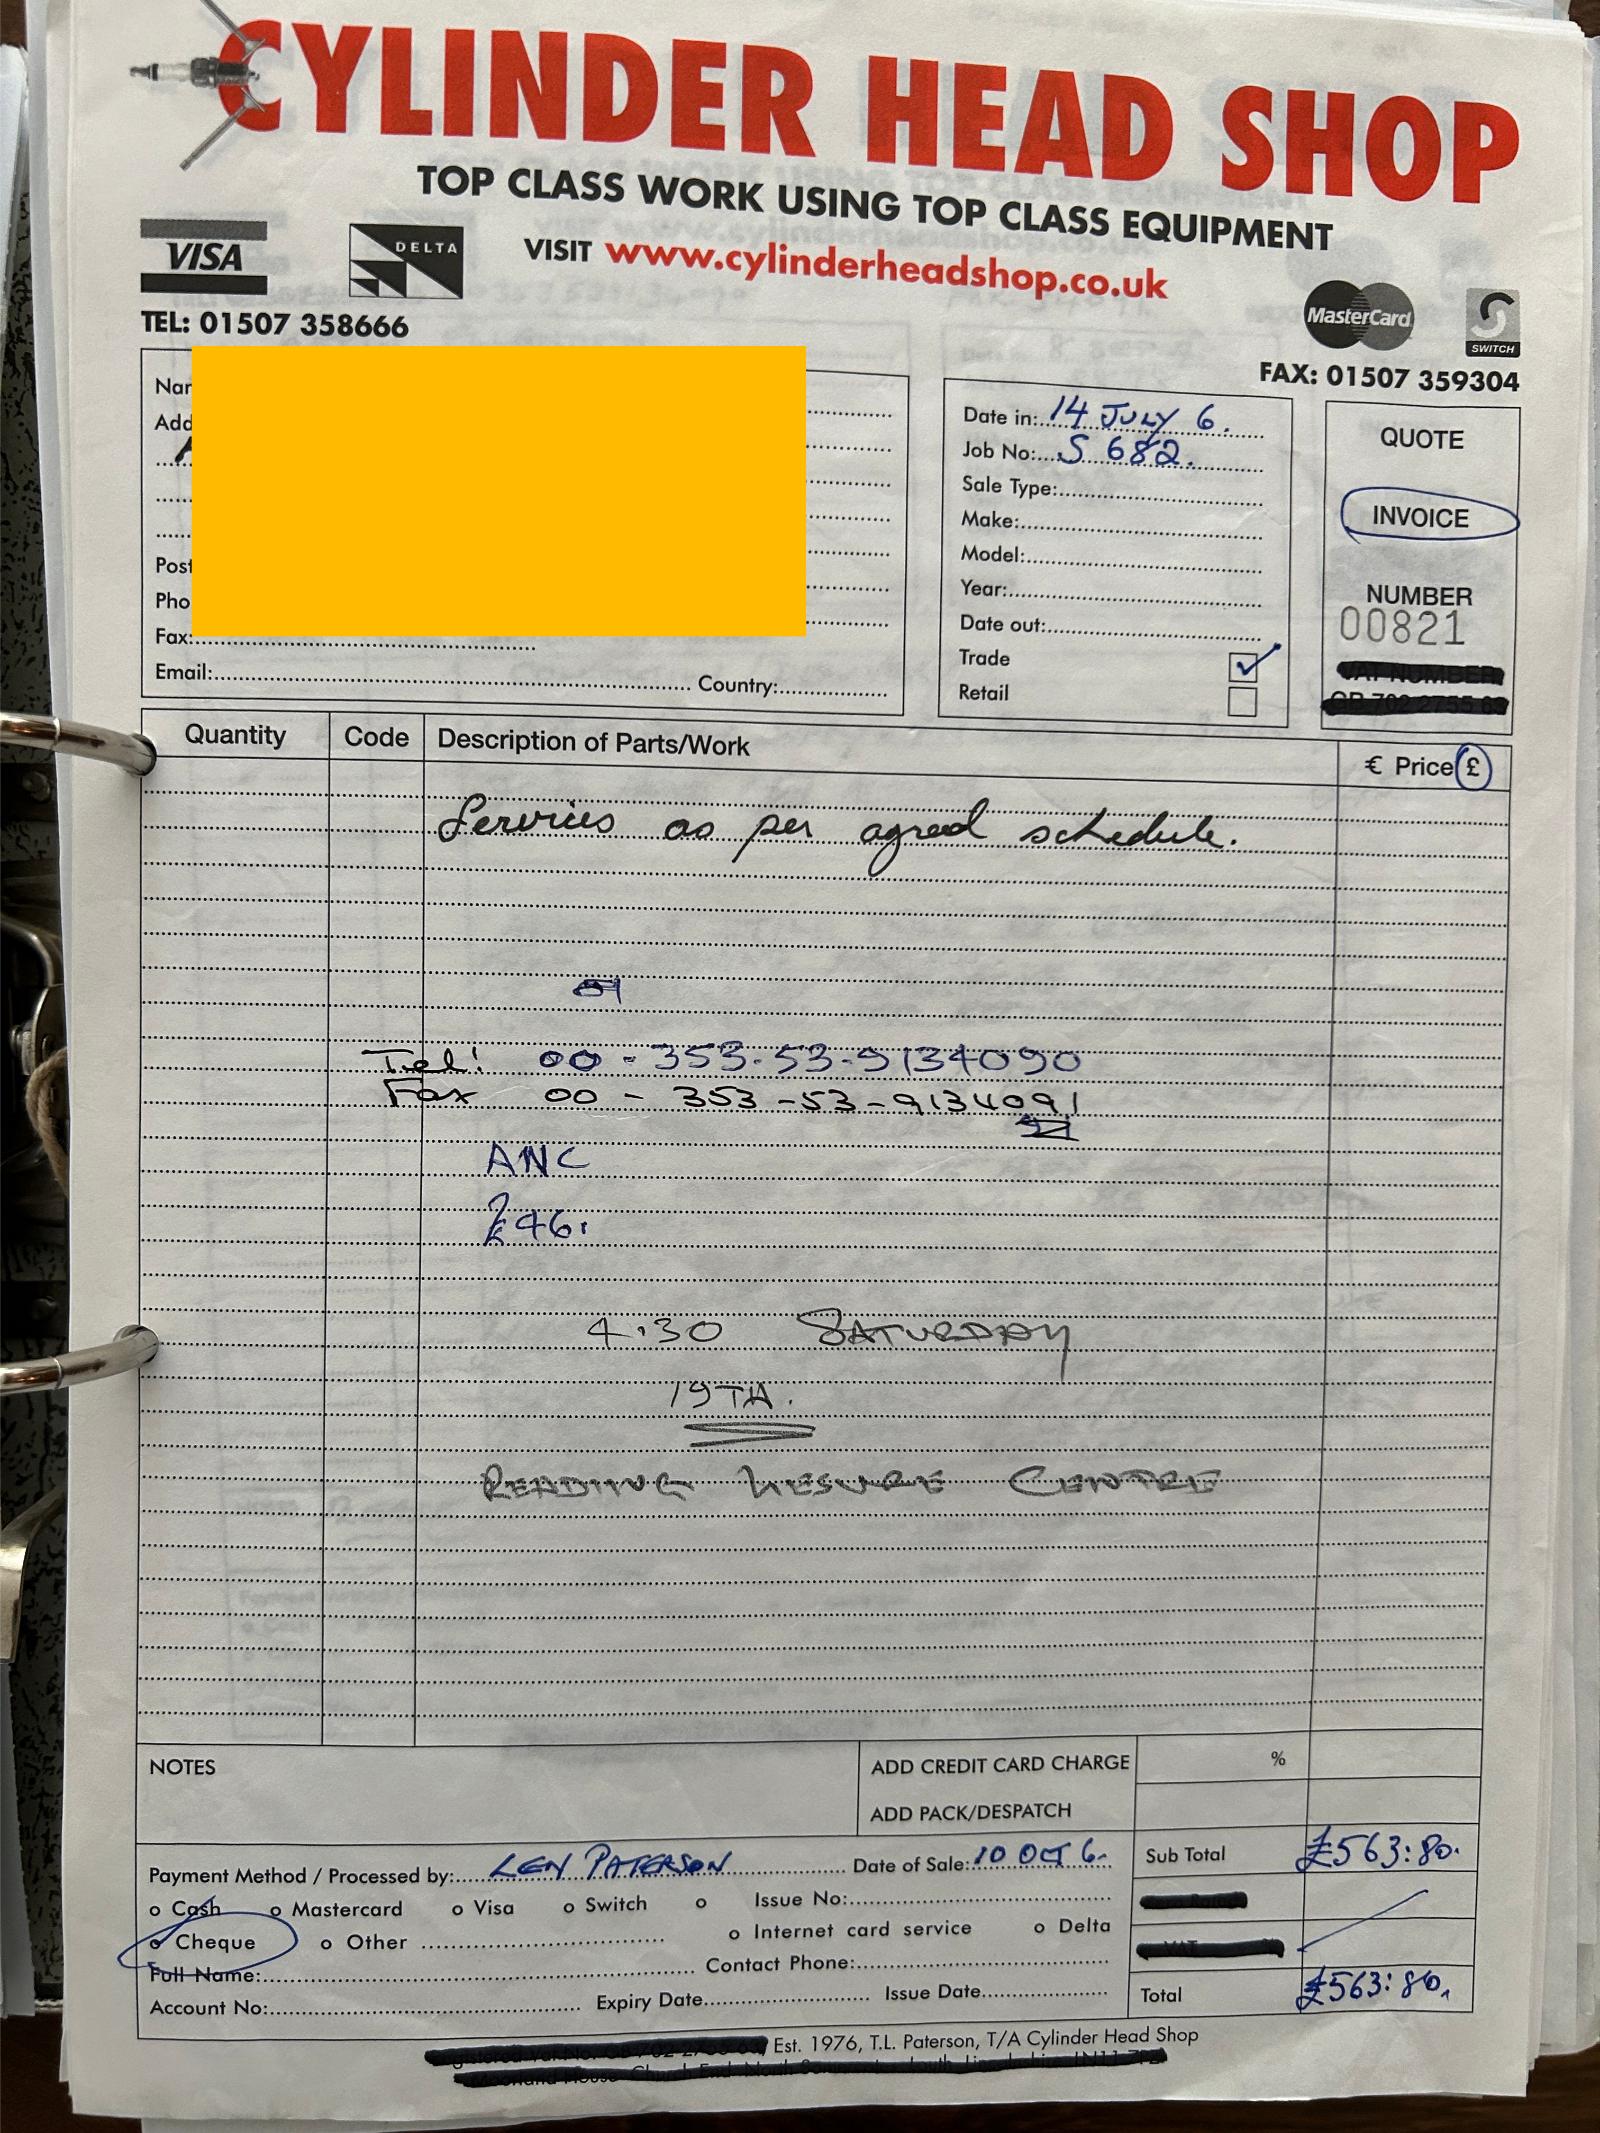 CYLINDER HEAD SHOP
TOP CLASS WORK USING TOP CLASS EQUIPMENT
VISA
DELTA
VISIT www.cylinderheadshop.co.uk
MasterCard
SWITCH
TEL: 01507 358666
FAX: 01507 359304
Fax:
Email: Country:
Date in: 14 JULY 6.
Job No: S 682.
Sale Type:
Make:
Model:
Year:
Date out:
Trade ✓
Retail
QUOTE
INVOICE
NUMBER
00821
Quantity Code Description of Parts/Work € Price £
Services as per agreed schedule.
Tel: 00-353-53-9134090
Fax 00 - 353-53-9134091
ANC
£46.
4.30 SATURDAY
19TH.
READING LIESURE CENTRE
NOTES
ADD CREDIT CARD CHARGE %
ADD PACK/DESPATCH
Payment Method / Processed by: LEN PATERSON Date of Sale: 10 OCT 6.
Sub Total £563:80.
o Cash o Mastercard o Visa o Switch o Issue No:
o Cheque o Other o Internet card service o Delta
Full Name: Contact Phone:
Account No: Expiry Date Issue Date
Total £563:80.
Est. 1976, T.L. Paterson, T/A Cylinder Head Shop